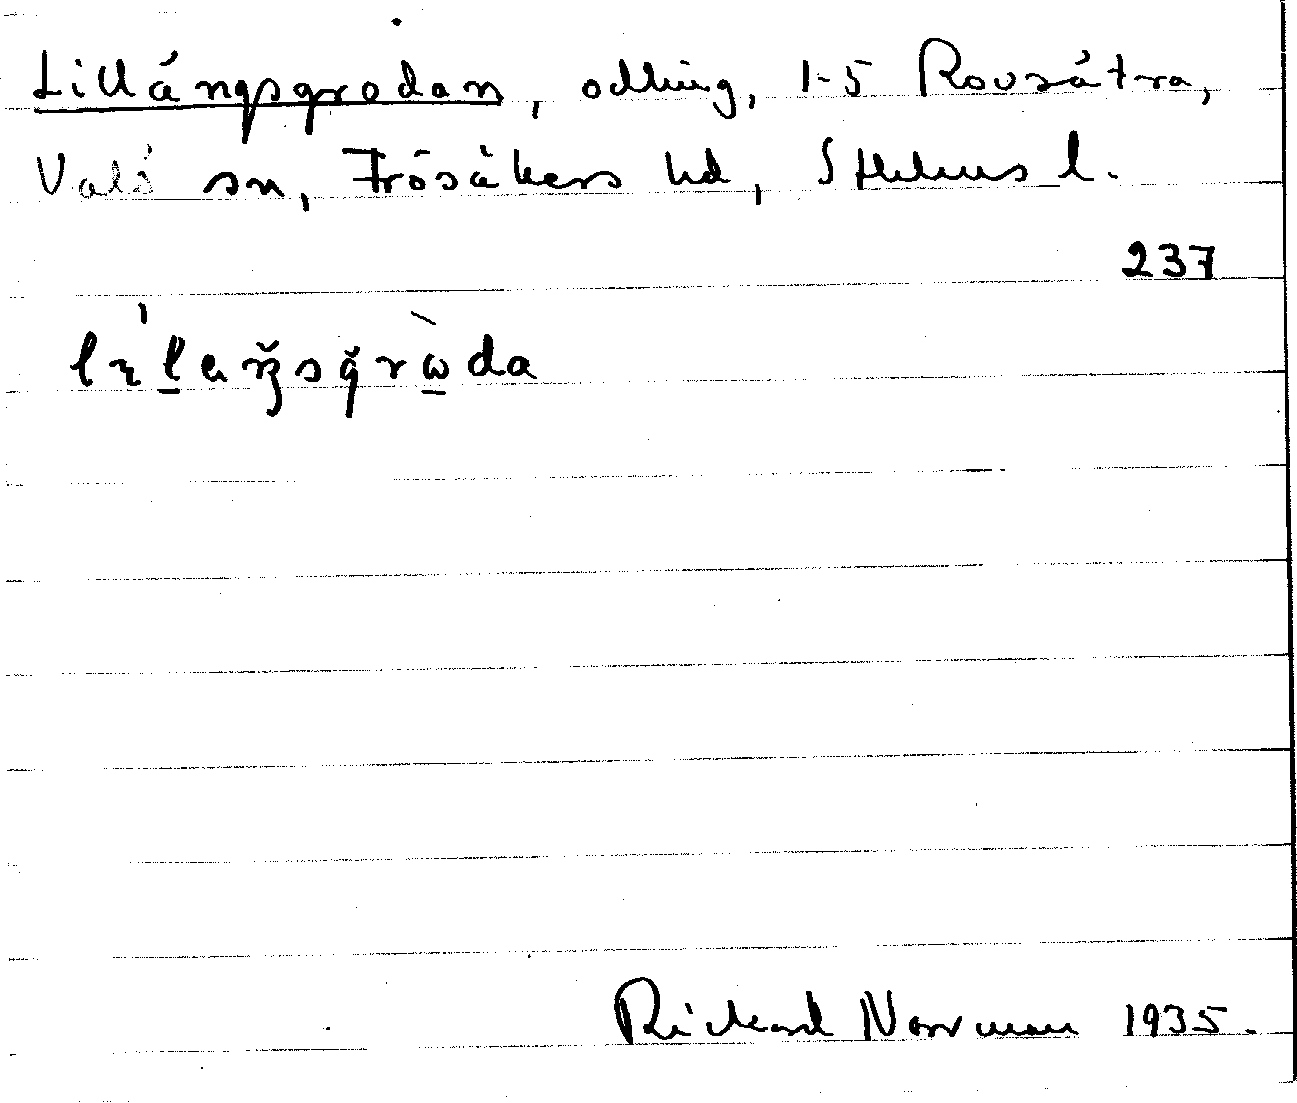 Lillängsgrodan, odling, 1-5 Rovsätra,
Valö sn, Frösåkers hd, Sthlms l.
237
Rickard Norrman 1935.